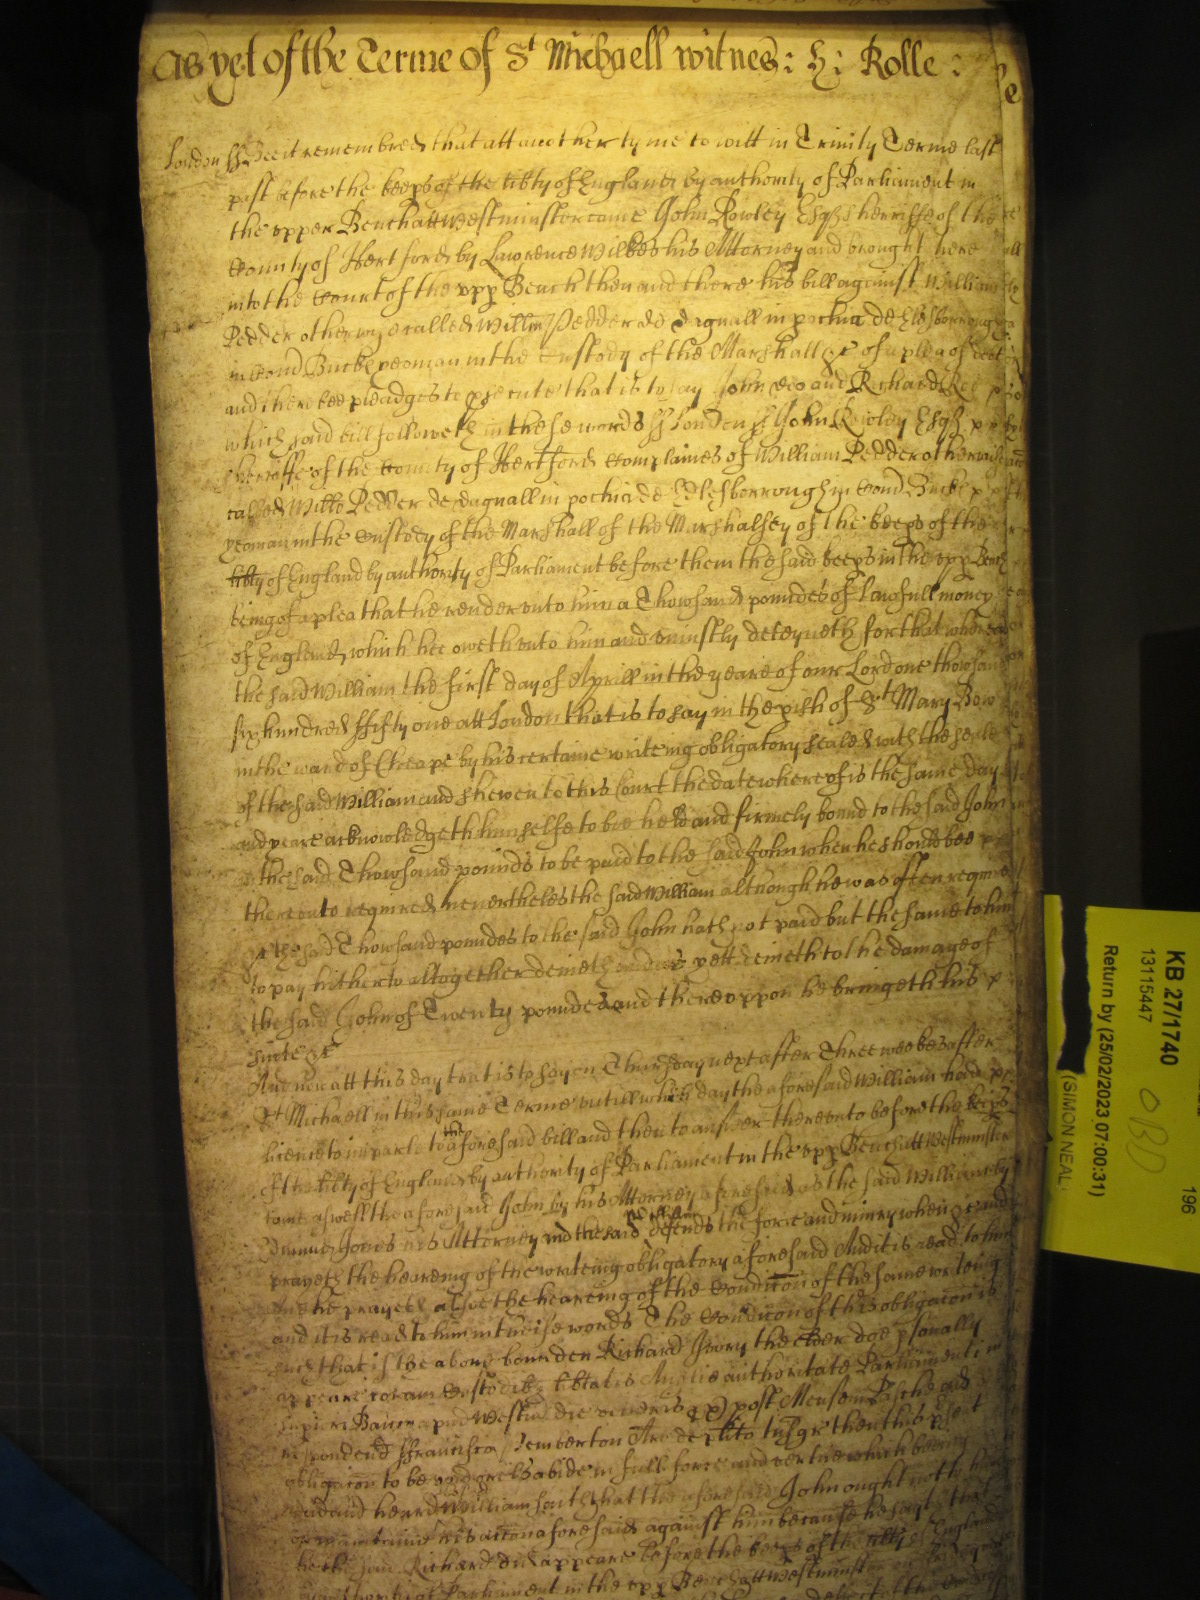 As yet of the Terme of St Michaell witnes: H: Rolle:
London ss Bee it remembred that att another tyme to witt in Trinity Terme last
past before the keeps of the libty of England by authority of Parliament in
the upper Bench att Westminster came John Rowley Esqr sherriffe of the
County of Hertford by Lawrence Wilkes his Attorney and brought here
into the Court of the upp Bench then and there his bill against William
Pedder otherwise called Willm Pedder de Dagnall in pochia de Edlesborrough
in Comd Bucks yeoman in the Custody of the Marshall &c of a plea of debt
and there bee pledges to psecute that is to say John Doe and Richard Roe
which said bill followeth in these words ss London ss John Rowley Esqr
sherriffe of the County of Hertford Complaines of William Pedder otherwise
called Willm Pedder de Dagnall in pochia de Edlesborrough in Comd Bucks
yeoman in the Custody of the Marshall of the Marshalsey of the keeps of the
libty of England by authority of Parliament before them the said keeps in the upp Bench
being of a plea that he render unto him a Thowsand poundes of lawfull money
of England which hee oweth unto him and uniustly deteyneth for that whereas
the said William the first day of Aprill in the yeare of our Lord one thowsand
six hundred ffifty one att London that is to say in the pish of St Mary Bow
in the ward of Cheape by his certaine writeing obligatory sealed with the seale
of the said William and shewen to this Court the date whereof is the same day
and yeare acknowledgeth himselfe to bee held and firmely bound to the said John
in the said Thowsand pounds to be paid to the said John when he should bee
thereunto required nevertheles the said William although he was often required
the said Thowsand poundes to the said John hath not paid but the same to him
to pay hitherto altogether denieth and as yett denieth to the damage of
the said John of Twenty poundes and thereuppon he bringeth his
suite &c
And now att this day that is to say on Thursday next after Three weekes after
St Michaell in this same Terme untill which day the aforesaid William had
licence to imparle to the aforesaid bill and then to answer thereunto before the keeps
of the libty of England by authority of Parliament in the upp Bench att Westminster
come aswell the aforesaid John by his Attorney aforesaid as the said William by
Jones his Attorney and the said William defends the force and iniury when &c and
prayeth the heareing of the writeing obligatory aforesaid And it is read to him
And he prayeth alsoe the heareing of the Condicon of the same writeing
and it is read to him in theise words The Condicon of this obligacon is
such that if the above bounden Richard Ivory the elder doe psonally
appeare coram Custodibz libtatis Anglie authoritate Parliamenti in
Supiori Banco apud Westm die veneris px post Mensem Pasche ad
respondend ffrancisco Pemberton Ar de plito tnsgr then this psent
obligacon to be void or els abide in full force and vertue which being
read and heard William saith that the aforesaid John ought not to have
or maintaine his accon aforesaid against him because he sayth that
he the said Richard did appeare before the keeps of the libty of England
by authority of Parliament in the upp Bench att Westminster
KB 27/1740
13115447
196
Return by (25/02/2023 07:00:31)
(SIMON NEAL)